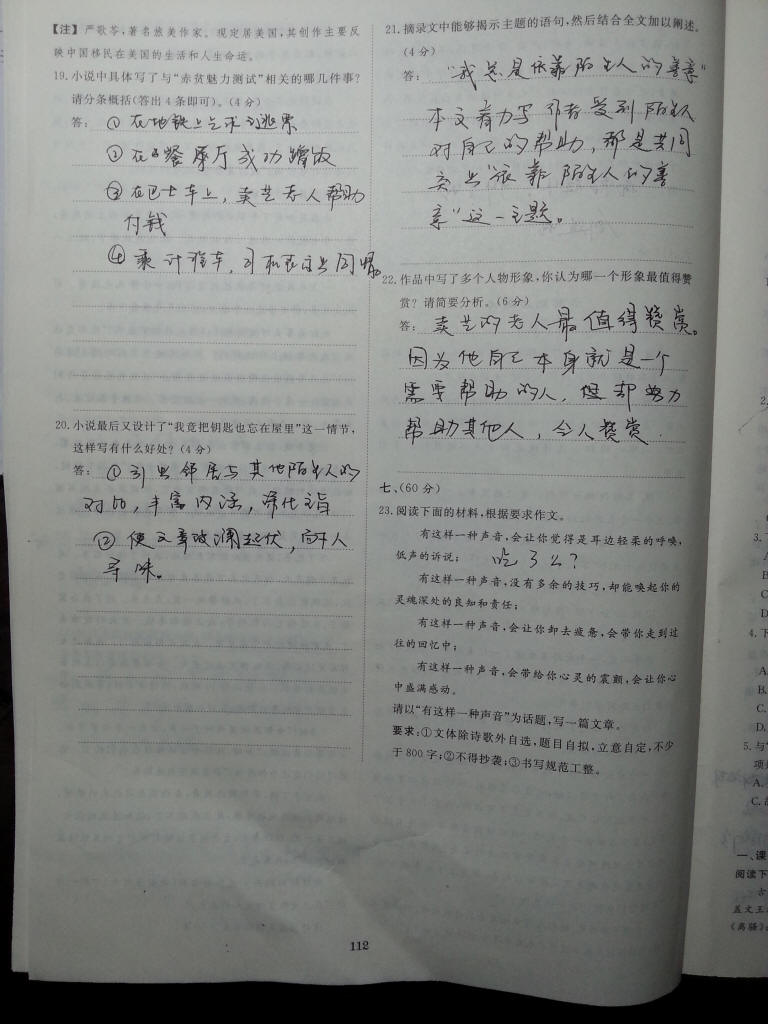 【注】严歌苓,著名旅美作家。现定居美国,其创作主要反
映中国移民在美国的生活和人生命运。
19.小说中具体写了与“赤贫魅力测试”相关的哪几件事?
请分条概括(答出4条即可)。(4分)
答: ①在地铁上乞求到逃票
②在餐厅成功蹭饭
③在巴士车上,卖艺老人帮助
付钱
④乘计程车,司机
20.小说最后又设计了“我竟把钥匙也忘在屋里”这一情节,
这样写有什么好处?(4分)
答: ①引出邻居与其他陌生人的
对比,丰富内涵,深化主旨
②使文章波澜起伏,耐人
寻味。
21.摘录文中能够揭示主题的语句,然后结合全文加以阐述。
(4分)
答: “我总是依靠陌生人的善意”
本文着力写作者受到陌生人
对自己的帮助,都是共同
突出“依靠陌生人的善
意”这一主题。
22.作品中写了多个人物形象,你认为哪一个形象最值得赞
赏?请简要分析。(6分)
答: 卖艺的老人最值得赞赏。
因为他自己本身就是一个
需要帮助的人,但却努力
帮助其他人,令人赞赏.
七、(60分)
23.阅读下面的材料,根据要求作文。
有这样一种声音,会让你觉得是耳边轻柔的呼唤,
低声的诉说; 吃了么?
有这样一种声音,没有多余的技巧,却能唤起你的
灵魂深处的良知和责任;
有这样一种声音,会让你卸去疲惫,会带你走到过
往的回忆中;
有这样一种声音,会带给你心灵的震颤,会让你心
中盛满感动。
请以“有这样一种声音”为话题,写一篇文章。
要求:①文体除诗歌外自选,题目自拟,立意自定,不少
于800字;②不得抄袭;③书写规范工整。
112
3.
B
C
D
4.下
A.
B.
C.
D.
5.与“
项是
A.
C.
一、课
阅读下
古
盖文王
《离骚》